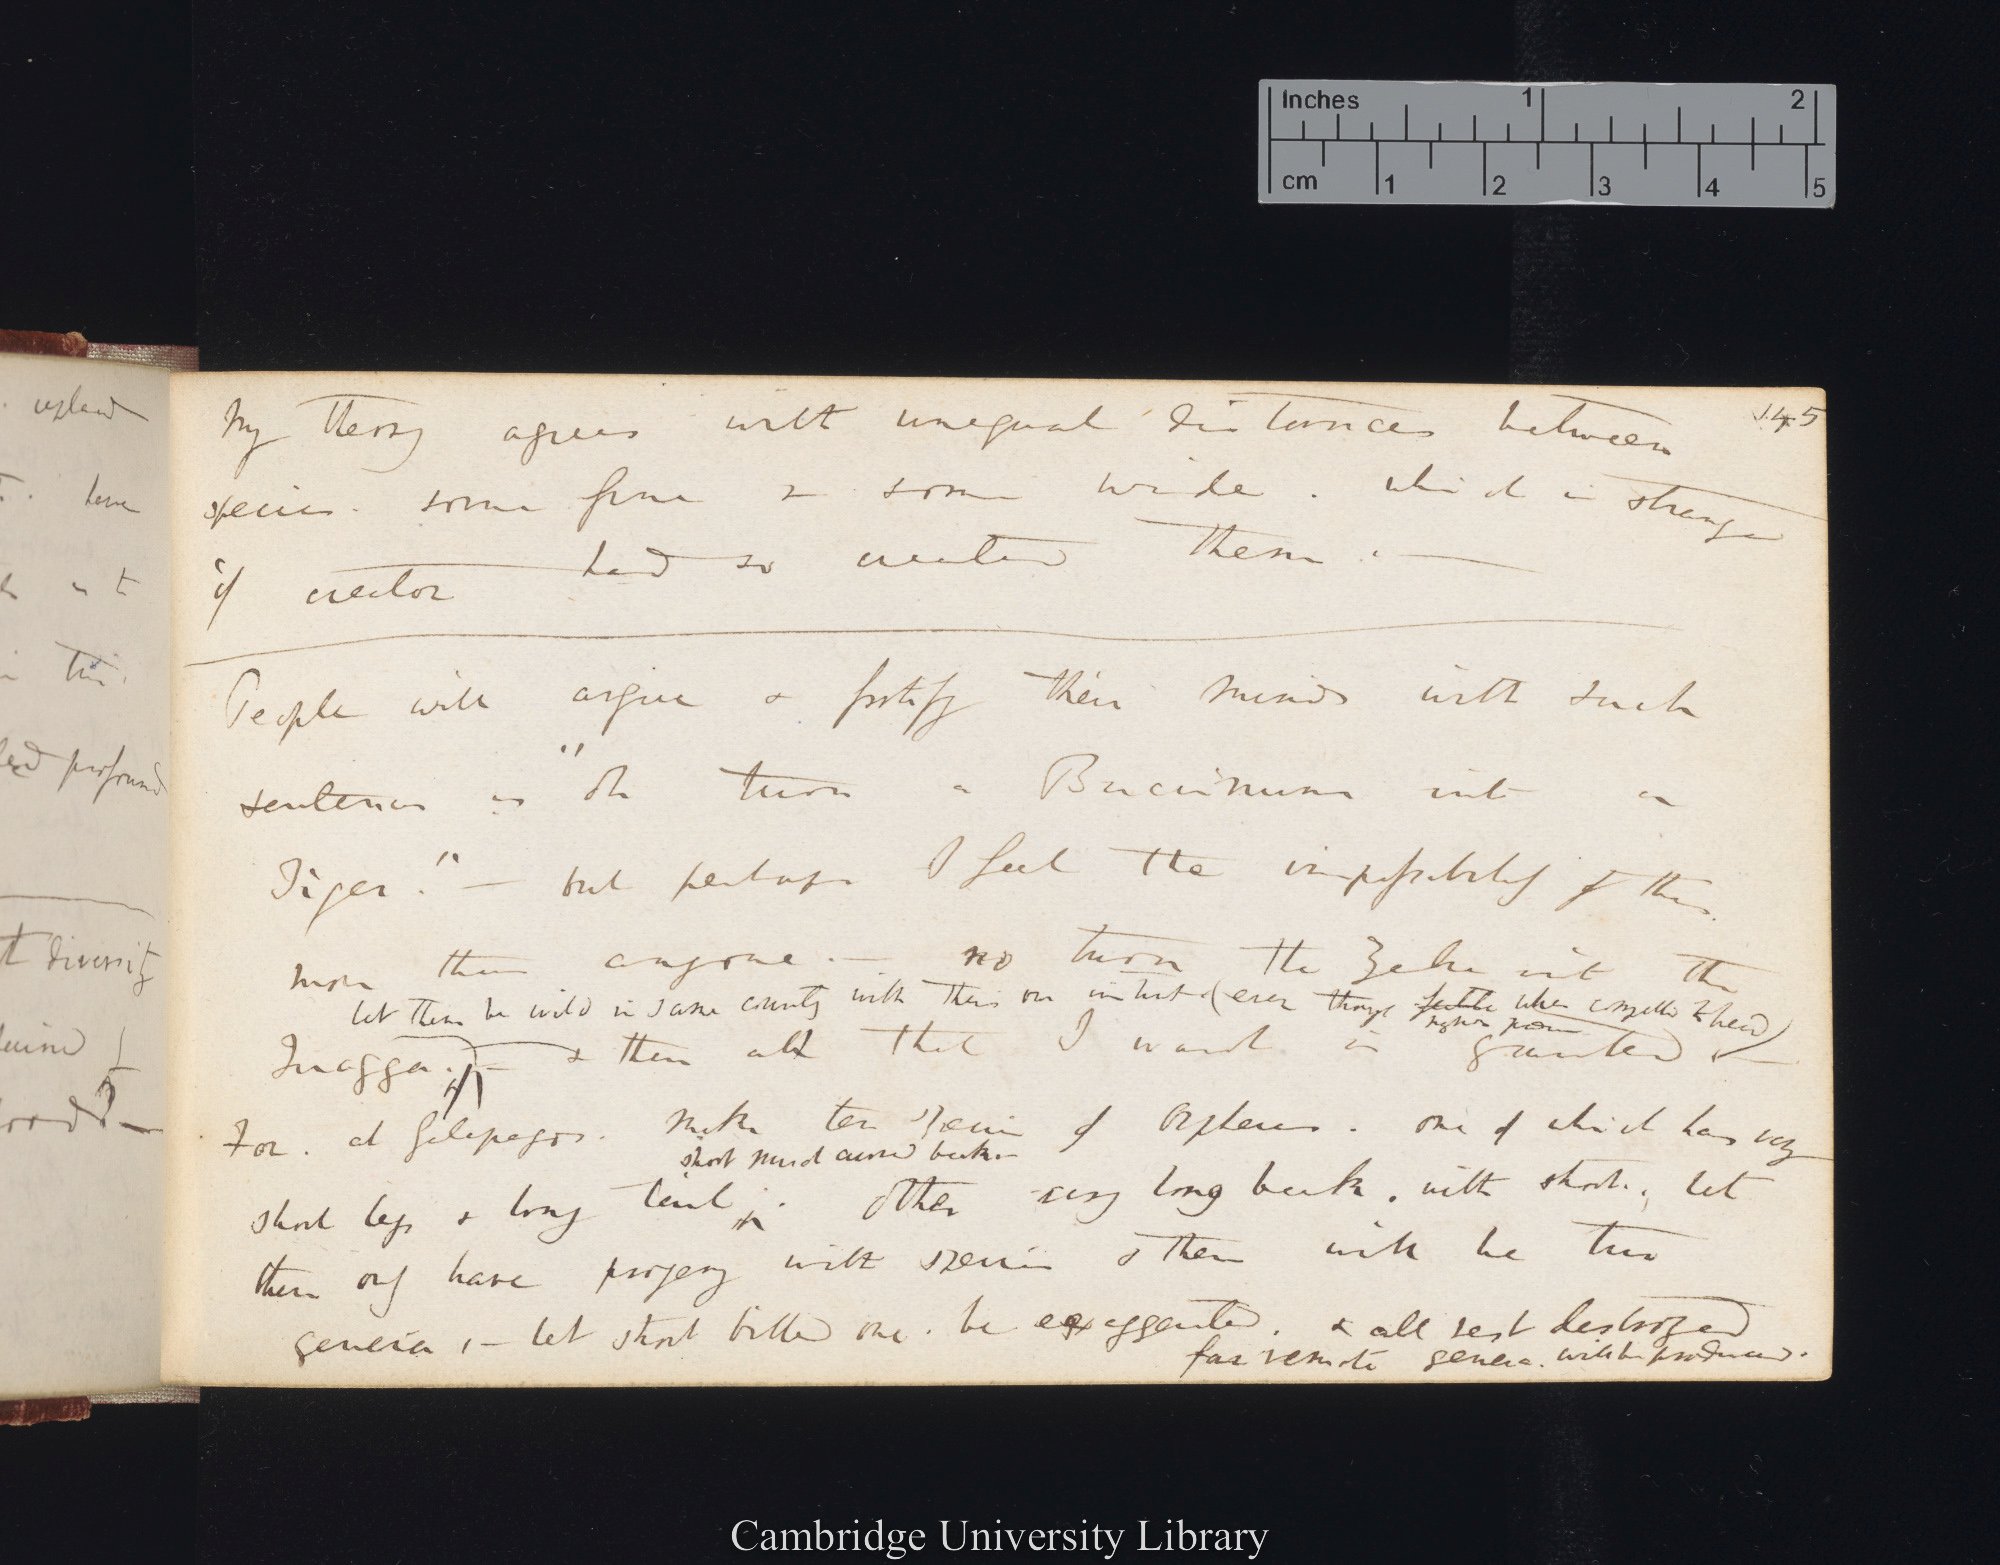 Inches 1 2
cm 1 2 3 4 5
upland
have
profound
diversity
145
My theory agrees with unequal distances between
species. some fine & some wide. which is strange
if creator had so created them. —
People will argue & fortify their minds with such
sentences as "oh turn a Buccinum into a
Tiger." — but perhaps I feel the impossibility of this
more than anyone. — no turn the Zebra into the
let them be wild in same country with their own instincts (even though fertile when compelled to breed)
Quagga. — & then all that I want is granted. —
For. at Galapagos. make ten species of Orpheus. one of which has very
short much curved beaks
short legs & long tail. other very long beak. with short. let
them only have progeny with species & there will be two
genera, — let short billed one. be exaggerated. & all rest destroyed
far remote genera. will be produced.
Cambridge University Library